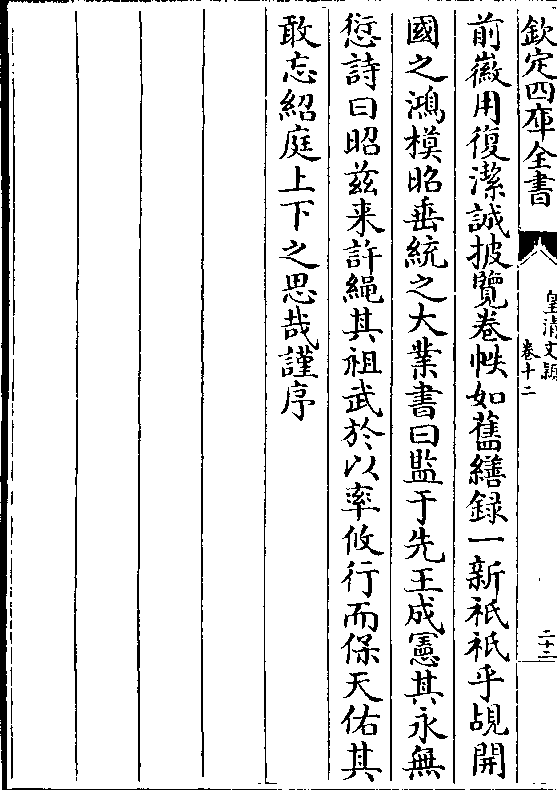 欽定四庫全書
皇清文穎
卷十二
二十二
前徽用復潔誠披覽卷帙如舊繕録一新祇祇乎覘開
國之鴻模昭垂統之大業書曰監于先王成憲其永無
愆詩曰昭兹来許繩其祖武於以率攸行而保天佑其
敢忘紹庭上下之思哉謹序